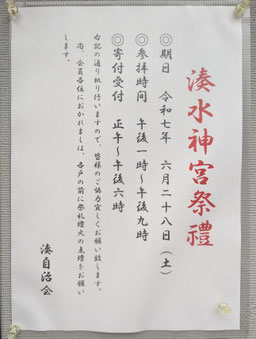 湊水神宮祭禮
◎期日 令和七年 六月二十八日(土)
◎参拝時間 午後一時~午後九時
◎寄付受付 正午~午後六時
右記の通り執り行いますので、皆様のご協力宜しくお願い致します。
尚、会員各位におかれましては、各戸の前に祭礼燈火の点燈をお願い
します。
湊自治会